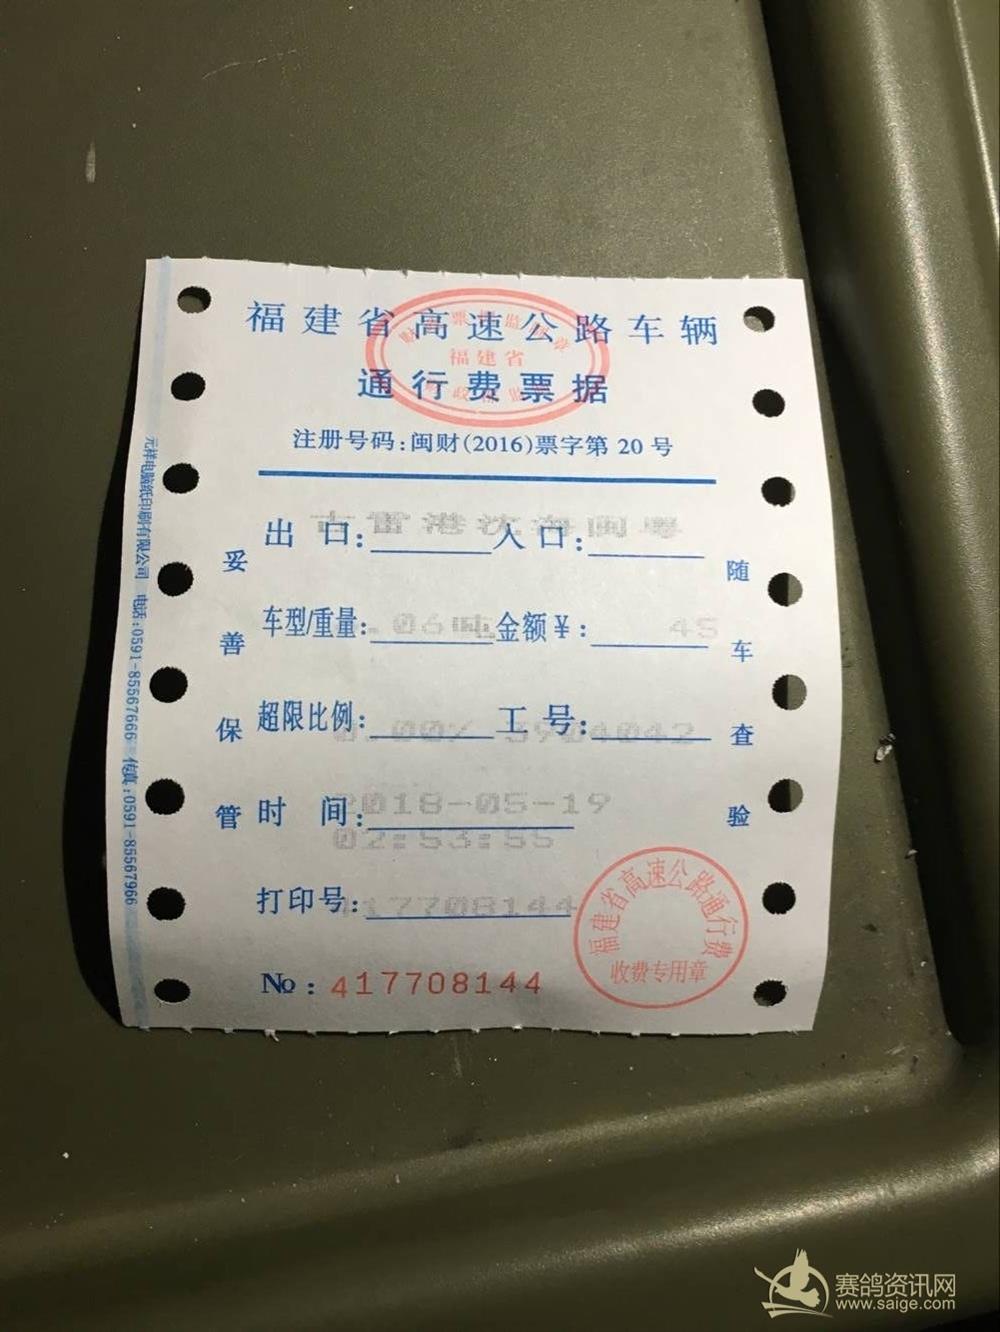 福建省高速公路车辆
通行费票据
福建省
注册号码:闽财(2016)票字第 20 号
出 口: 古雷港 入 口: 沈海闽粤
车型/重量: .06吨 金额¥: 45
超限比例: 0.00% 工 号: 3904042
时 间: 2018-05-19
02:53:55
打印号: 417708144
No : 417708144
妥善保管
随车查验
元祥电脑纸印刷有限公司 电话:0591-85567666 传真:0591-85567966
福建省高速公路通行费
收费专用章
赛鸽资讯网
www.saige.com